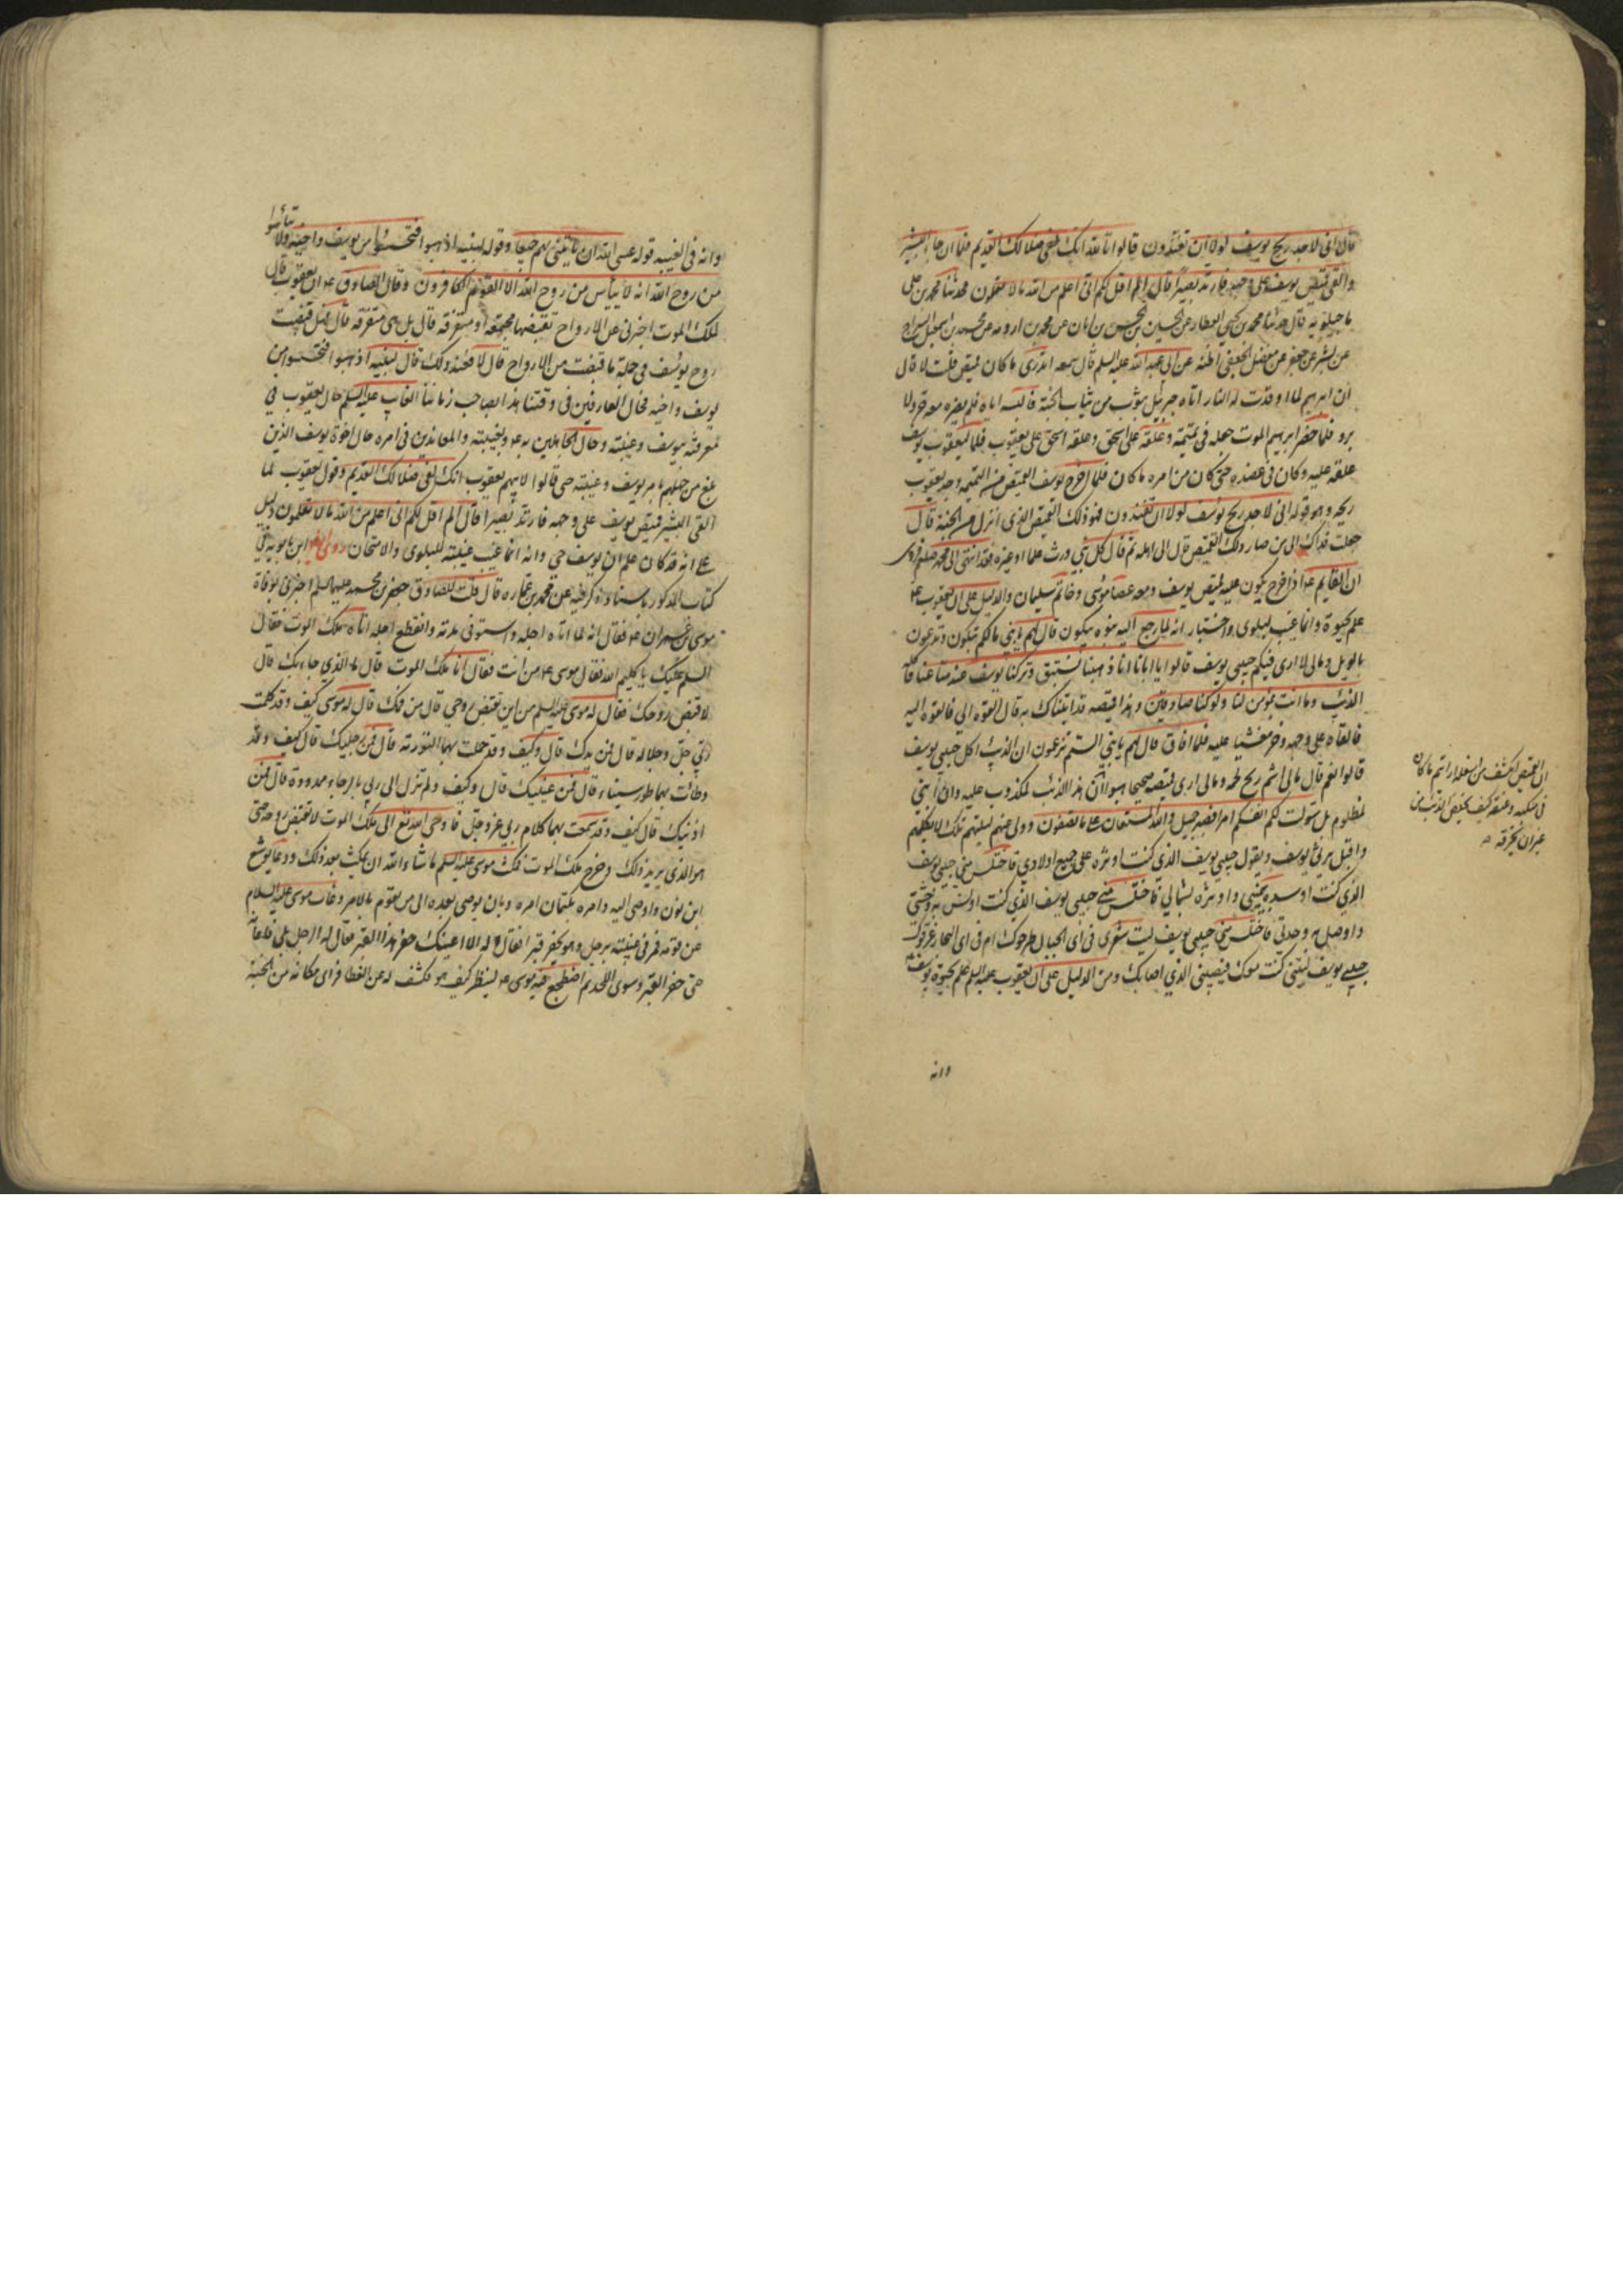 قال انى لاجد ريح يوسف لولا ان تفندون قالوا تالله انك لفى ضلالك القديم فلما ان جاء البشير
والقى قميص يوسف على وجهه فارتد بصيرا قال الم اقل لكم انى اعلم من الله ما لا تعلمون حدثنا محمد بن على
ماجيلويه قال حدثنا محمد بن يحيى العطار عن الحسين بن الحسن بن ابان عن محمد بن اورمه عن محمد بن اسمعيل السراج
عن بشر بن جعفر عن مفضل الجعفى اظنه عن ابى عبد الله عليه السلم قال سمعه اتدرى ما كان قميص قلت لا قال
ان ابرهيم لما اوقدت له النار اتاه جبرئيل بثوب من ثياب الجنة فالبسه اياه فلم يضره معه حر ولا
برد فلما حضر ابرهيم الموت جعله فى تميمة وعلقه على اسحق وعلقه اسحق على يعقوب فلما ليعقوب يوسف
علقه عليه وكان فى عضده حتى كان من امره ما كان فلما اخرج يوسف القميص من التميمه وجد يعقوب
ريحه وهو قوله انى لاجد ريح يوسف لولا ان تفندون فهو ذلك القميص الذى انزل من الجنة قال
جعلت فداك الى من صار ذلك القميص قال الى اهله ثم قال كل نبى ورث علما او غيره فقد انتهى الى محمد صلعم فروى
ان القايم ع اذا خرج يكون عليه قميص يوسف ومعه عصا موسى وخاتم سليمان والدليل على ان يعقوب ع
علم بحيوة وانما غيب لبلوى واختبار انه لما رجع اليه بنوه يبكون قال لهم يا بنى ما لكم تبكون وتدعون
بالويل ومالى لا ارى فيكم حبيبى يوسف قالوا يا ابانا انا ذهبنا نستبق وتركنا يوسف عند متاعنا فاكله
الذئب وما انت بمؤمن لنا ولو كنا صادقين وهذا قميصه قد اتيناك به قال القوه الى فالقوه اليه
فالقاه على وجهه وخر مغشيا عليه فلما افاق قال لهم يا بنى الستم تزعمون ان الذئب اكل حبيبى يوسف
قالوا نعم قال مالى لا اشم ريح لحمه ومالى ارى قميصه صحيحا هبوا ان هذا الذئب لمكذوب عليه وان ابنى
لمظلوم بل سولت لكم انفسكم امرا فصبر جميل والله المستعان على ما تصفون وولى عنهم ليلتهم تلك لا يكلمهم
واقبل يرثى يوسف ويقول حبيبى يوسف الذى كنت اوثره على جميع اولادى فاختلس منى حبيبى يوسف
الذى كنت اوسده يمينى وادثره بشمالى فاختلس منى حبيبى يوسف الذى كنت اونس به وحشتى
واوصل به وحدتى فاختلس منى حبيبى يوسف ليت شعرى فى اى الجبال طرحوك ام فى اى البحار غرقوك
حبيبى يوسف ليتنى كنت معك فيصيبنى الذى اصابك ومن الدليل على ان يعقوب عليه السلم علم بحيوة يوسف
وانه
فى
غير ان يخرقه
وانه فى الغيبه قوله عسى الله ان ياتينى بهم جميعا وقوله لبنيه اذهبوا فتحسسوا من يوسف واخيه ولا تيأسوا
من روح الله انه لا ييأس من روح الله الا القوم الكافرون وقال الصادق ع ان يعقوب قال
لملك الموت اخبرنى عن الارواح تقبضها مجتمعه او متفرقه قال بل هى متفرقه قال فهل قبضت
روح يوسف فى جملة ما قبضت من الارواح قال لا فعند ذلك قال لبنيه اذهبوا فتحسسوا من
يوسف واخيه فحال العارفين فى وقتنا هذا بصاحب زماننا الغايب عليه السلم حال يعقوب فى
معرفته بيوسف وغيبته وحال الجاهلين به ع وبغيبته والمعاندين فى امره حال اخوة يوسف الذين
بلغ من جهلهم بامر يوسف وغيبته حتى قالوا لابيهم يعقوب انك لفى ضلالك القديم وقول يعقوب لما
القى البشير قميص يوسف على وجهه فارتد بصيرا قال الم اقل لكم انى اعلم من الله ما لا تعلمون دليل
على انه قد كان علم ان يوسف حى وانه انما غيب غيبته للبلوى والامتحان روى ابن بابويه فى
كتاب المذكور باسناده يرفعه عن محمد بن عماره قال قلت للصادق جعفر بن محمد عليهما السلم اخبرنى بوفاة
موسى بن عمران ع فقال انه لما اتاه اجله واستوفى مدته وانقطع اجله اتاه ملك الموت فقال
السلم عليك يا كليم الله فقال موسى ع من انت فقال انا ملك الموت قال ما الذى جاء بك قال
لاقبض روحك فقال له موسى عليه السلم من اين تقبض روحى قال من فمك قال له موسى كيف وقد كلمت
ربى جل وجلاله قال فمن يدك قال وكيف وقد حملت بهما التورته قال فمن رجليك قال كيف وقد
وطأت بهما طور سيناء قال فمن عينيك قال وكيف ولم تزل الى ربى بالرجاء ممدودة قال فمن
اذنيك قال كيف وقد سمعت بهما كلام ربى عز وجل فاوحى الله تع الى ملك الموت لا تقبض روحه حتى
هو الذى يريد ذلك وخرج ملك الموت فمكث موسى عليه السلم ما شاء الله ان يمكث بعد ذلك ودعا يوشع
ابن نون واوصى اليه وامره بكتمان امره وبان يوصى بعده الى من يقوم بالامر وغاب موسى عليه السلام
عن قومه فمر فى غيبته برجل وهو يحفر قبرا فقال له الا اعينك حفر هذا القبر فقال له الرجل بلى فاعانه
حتى حفر القبر وسوى اللحد ثم اضطجع فيه موسى ع لينظر كيف هو فكشف له عن الغطا فرأى مكانه من الجنة